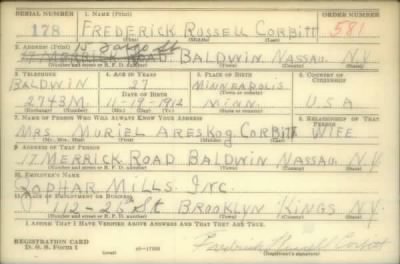 SERIAL NUMBER 1. NAME (Print) ORDER NUMBER
178 FREDERICK RUSSELL CORBITT 581
(First) (Middle) (Last)
2. ADDRESS (Print)
17 MERRICK ROAD BALDWIN NASSAU N.Y.
(Number and street or R. F. D. number) (Town) (County) (State)
3. TELEPHONE 4. AGE IN YEARS 5. PLACE OF BIRTH 6. COUNTRY OF CITIZENSHIP
BALDWIN 27 MINNEAPOLIS
DATE OF BIRTH
2743M 11-19-1912 MINN. USA
7. NAME OF PERSON WHO WILL ALWAYS KNOW YOUR ADDRESS 8. RELATIONSHIP OF THAT PERSON
MRS. MURIEL ARESKOG CORBITT WIFE
(Mr., Mrs., Miss) (First) (Middle) (Last)
9. ADDRESS OF THAT PERSON
17 MERRICK ROAD BALDWIN NASSAU N.Y.
(Number and street or R. F. D. number) (Town) (County) (State)
10. EMPLOYER'S NAME
RODHAR MILLS. INC.
11. PLACE OF EMPLOYMENT OR BUSINESS
112-26 St BROOKLYN KINGS N.Y.
(Number and street or R. F. D. number) (Town) (County) (State)
I AFFIRM THAT I HAVE VERIFIED ABOVE ANSWERS AND THAT THEY ARE TRUE.
REGISTRATION CARD
D. S. S. Form 1 (over) Frederick Russell Corbitt
(Registrant's signature)